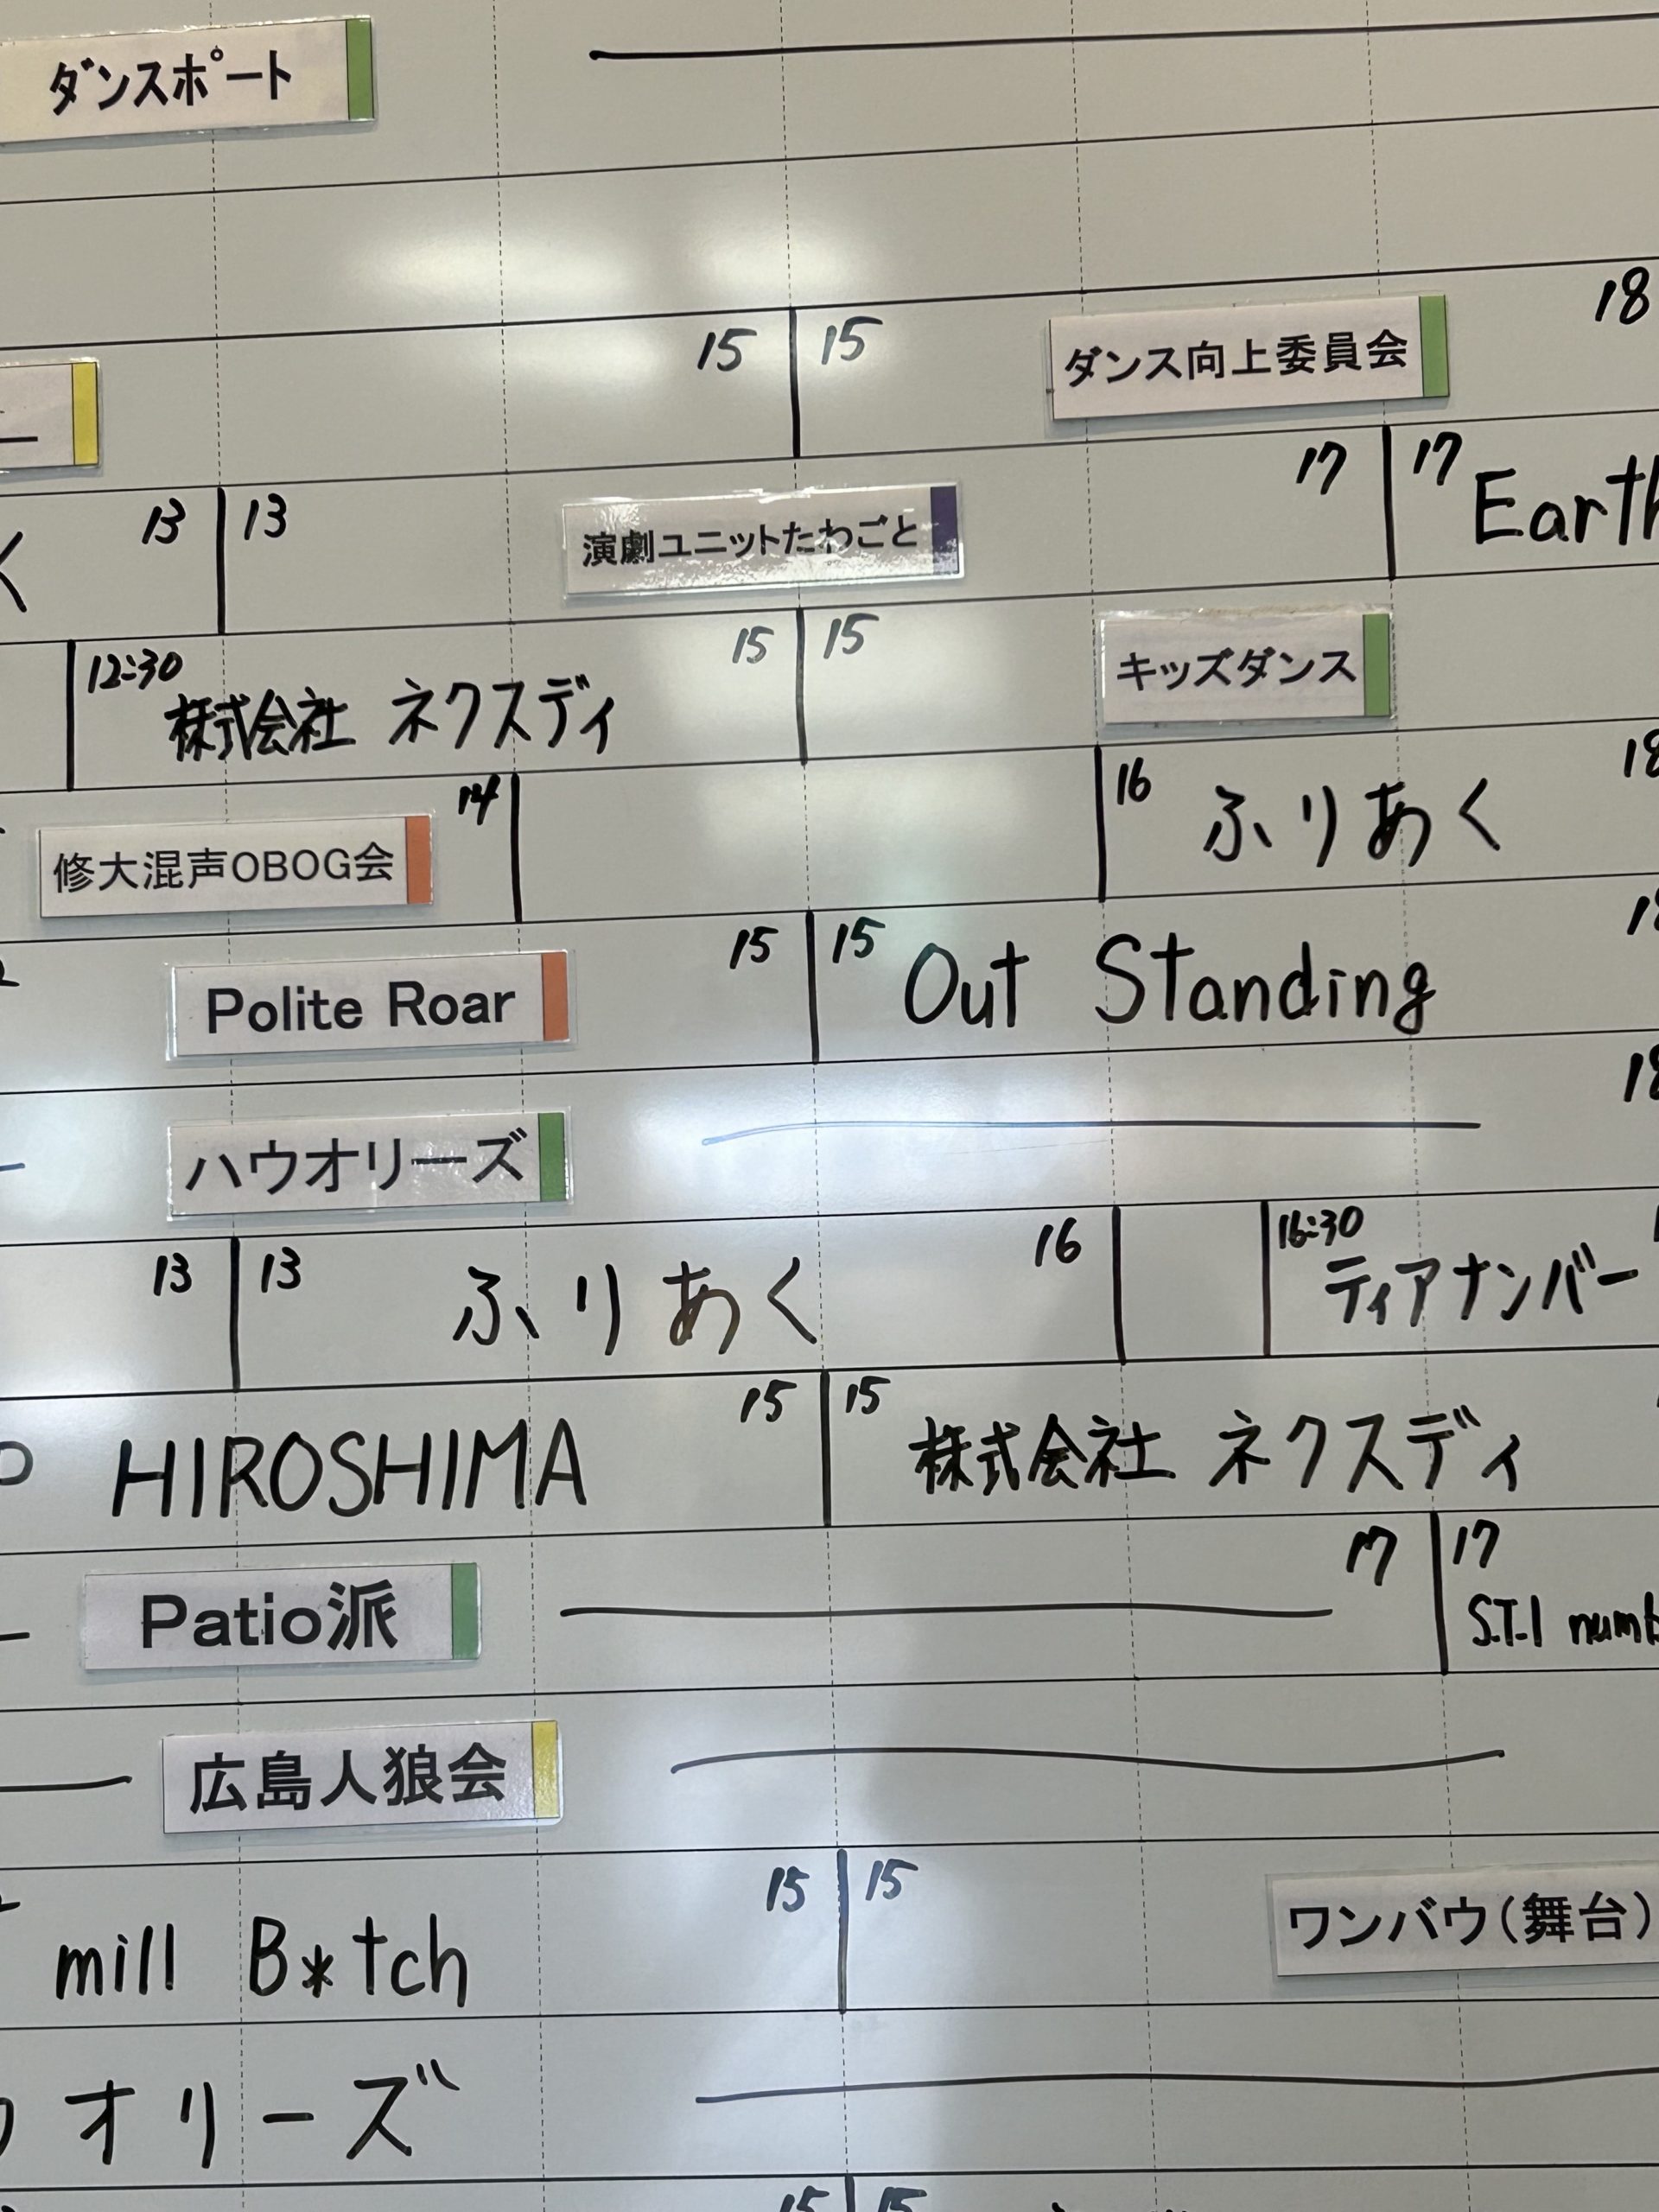 ダンスポート
15 15 ダンス向上委員会 18
13 13 演劇ユニットたわごと 17 17 Earth
12:30 株式会社 ネクスディ 15 15 キッズダンス
修大混声OBOG会 14 16 ふりあく 18
Polite Roar 15 15 Out Standing 18
ハウオリーズ 18
13 13 ふりあく 16 16:30 ティアナンバー
P HIROSHIMA 15 15 株式会社 ネクスディ
Patio派 17 17 S.T.1 numb
広島人狼会
mill B*tch 15 15 ワンバウ(舞台)
オリーズ
15 15